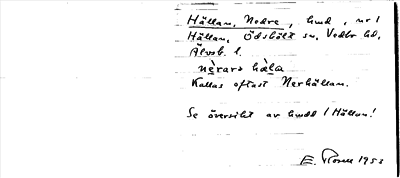 Hällan, Nedre, hmd, nr 1
Hällan, Ödsbält sn, Vedbo hd,
Älvsb. l.
nèrars hæla
Kallas oftast Nerhällan.
Se översikt av hmdd / Hällan!
E. Rosell 1953